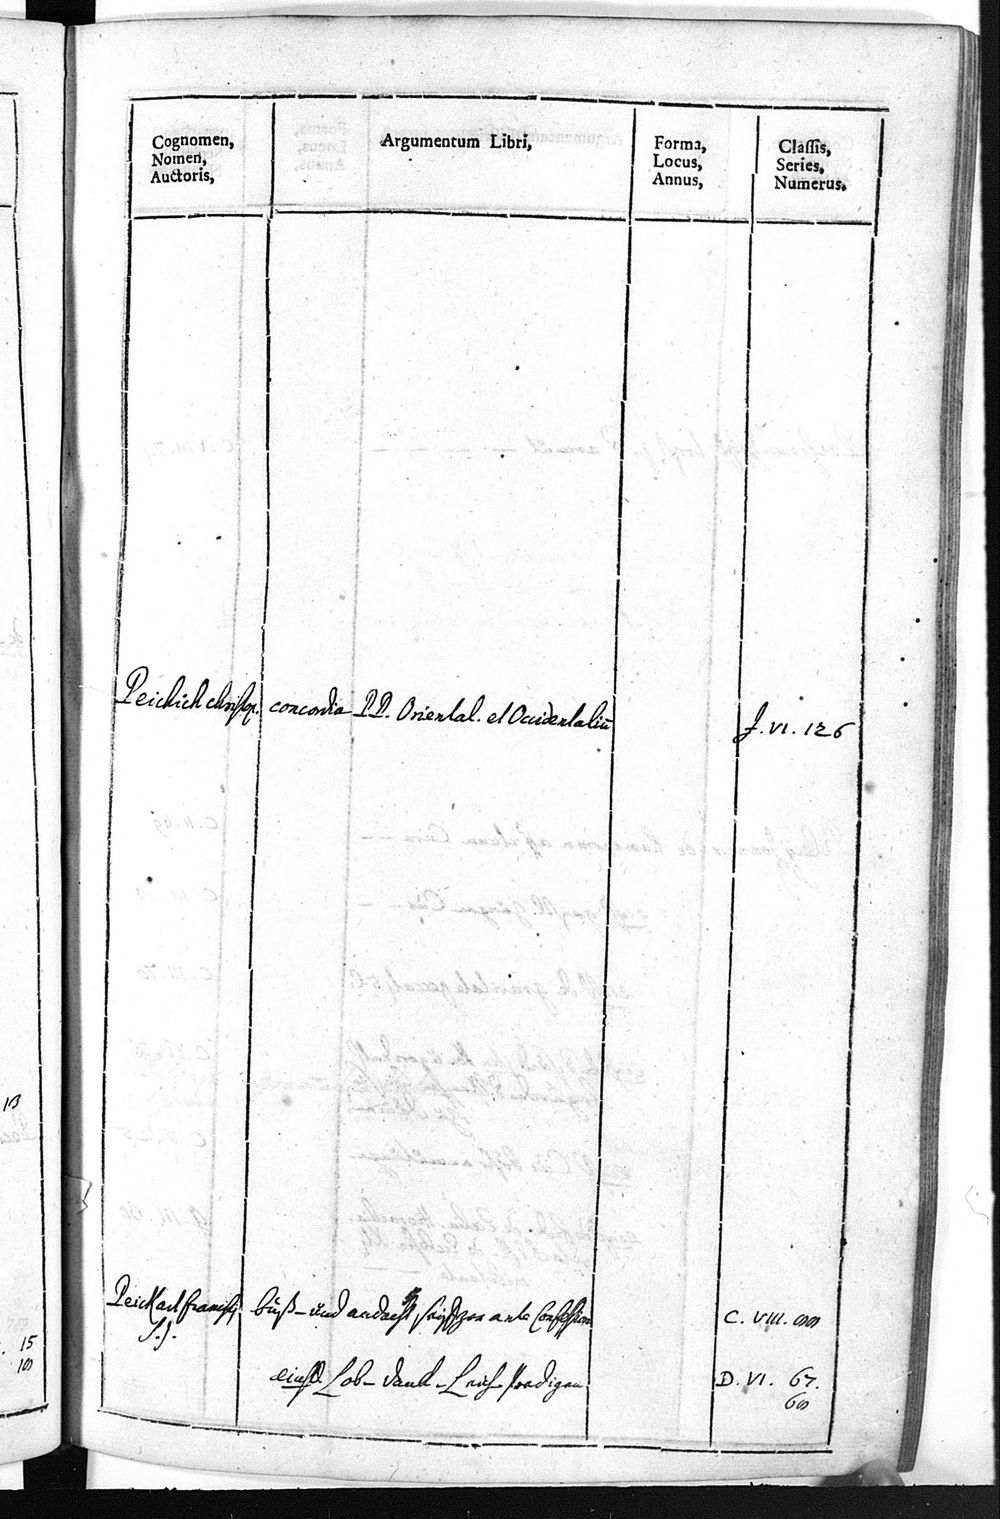 Cognomen,
Nomen,
Auctoris,
Argumentum Libri,
Forma,
Locus,
Annus,
Classis,
Series,
Numerus.
Peichich christop. concordia PP. Oriental. et Occidentaliū f. VI. 126
Peickart francisc. büß- und andacht ante Confession C. VIII.
S.J.
eiusd. Lob- Danck- Leich- Predigen D. VI. 67.
15